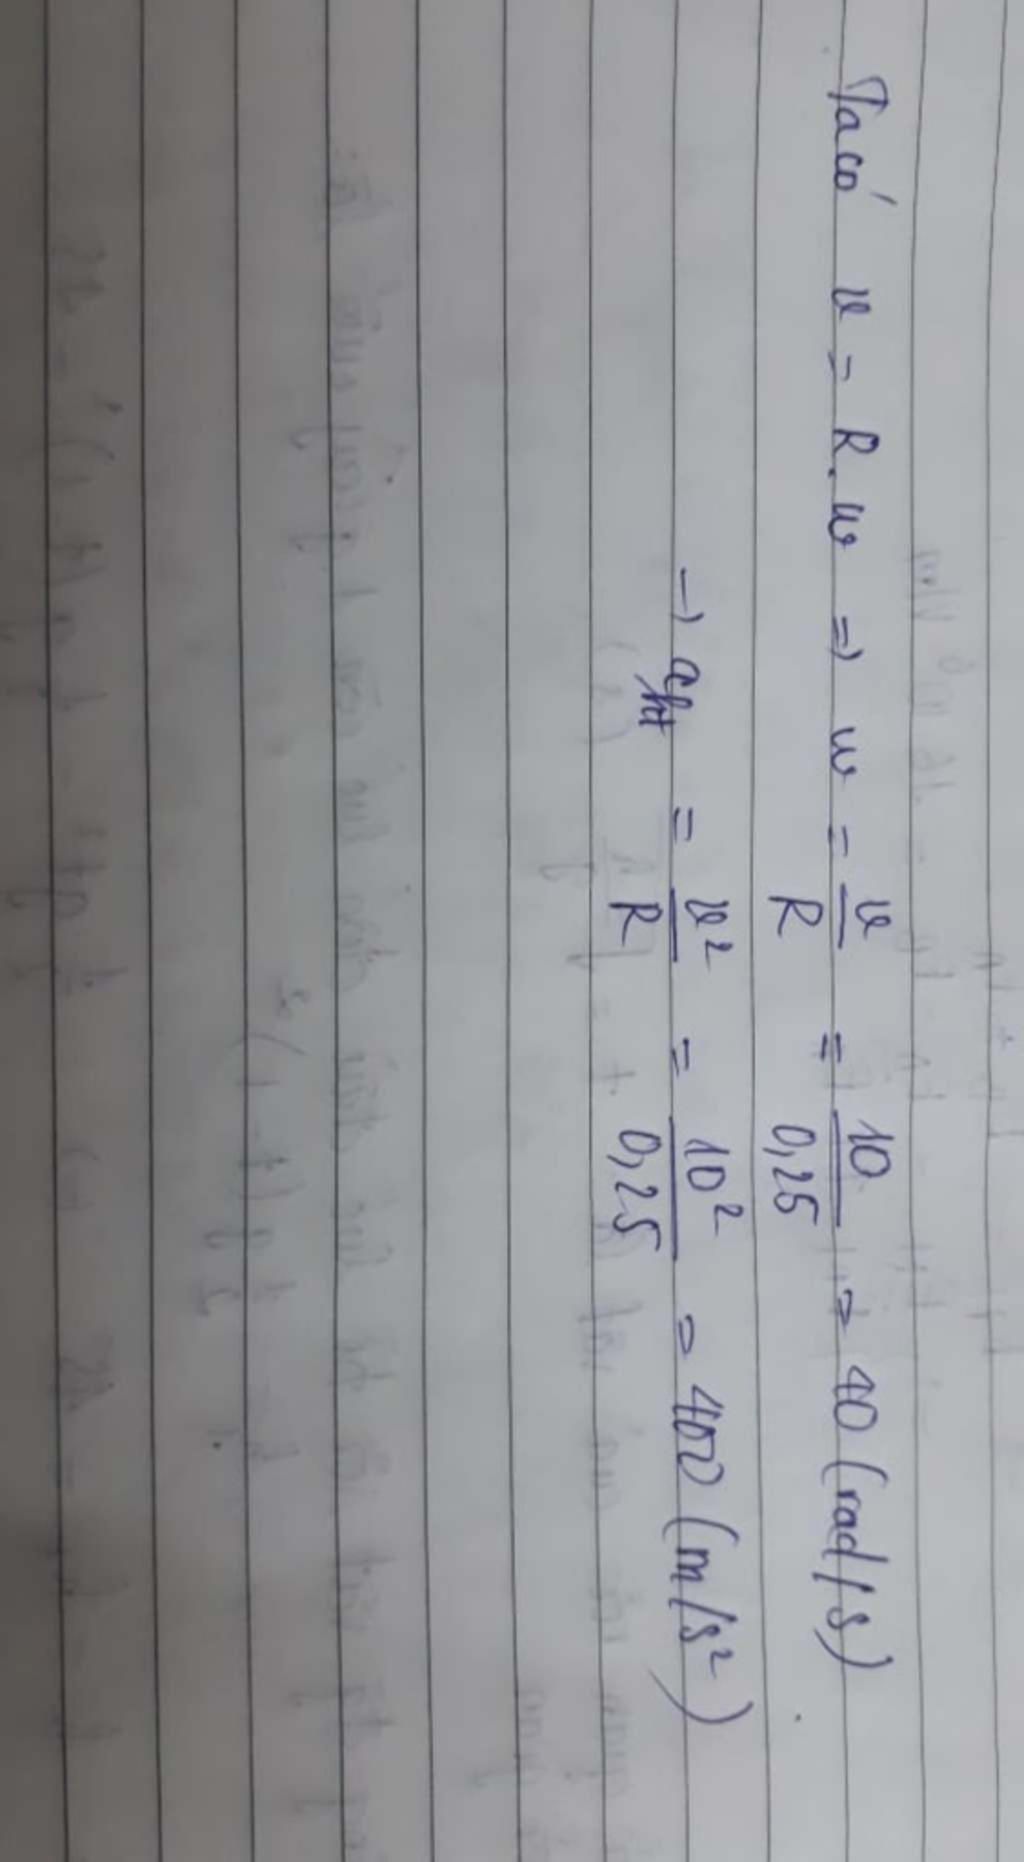 Ta có v = R.ω => ω = v/R = 10/0,25 = 40 (rad/s)
→ aht = v²/R = 10²/0,25 = 400 (m/s²)